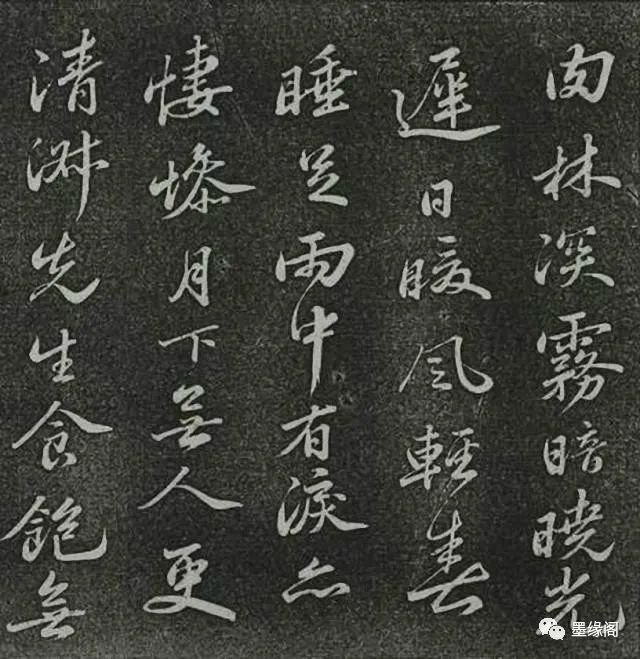 肉林深霧暗曉光
遲日暖風輕春
睡足雨中有淚亦
悽慘月下無人更
清淑先生食飽無
墨缘阁